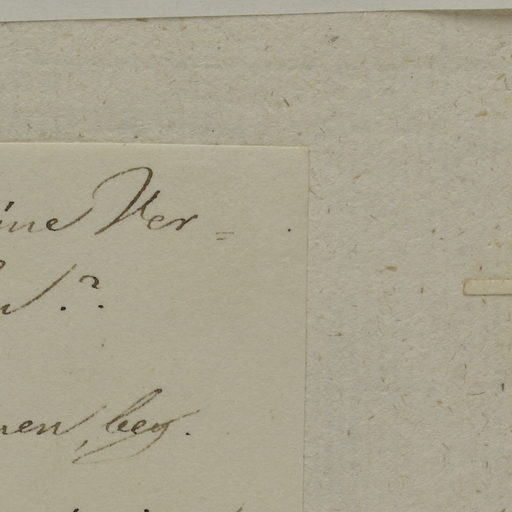 ine Ver=
.?
nen, bey.